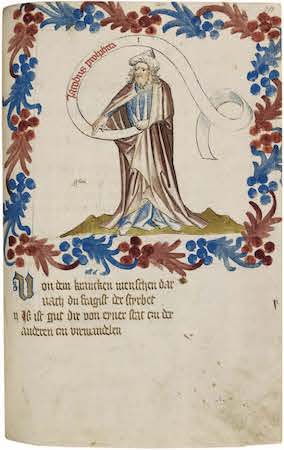 Jacobus propheta
Von dem krancken menschen dar
nach du fragist der styrbet
Is ist gut dir von eyner stat czu der
anderen czu vorwandelen